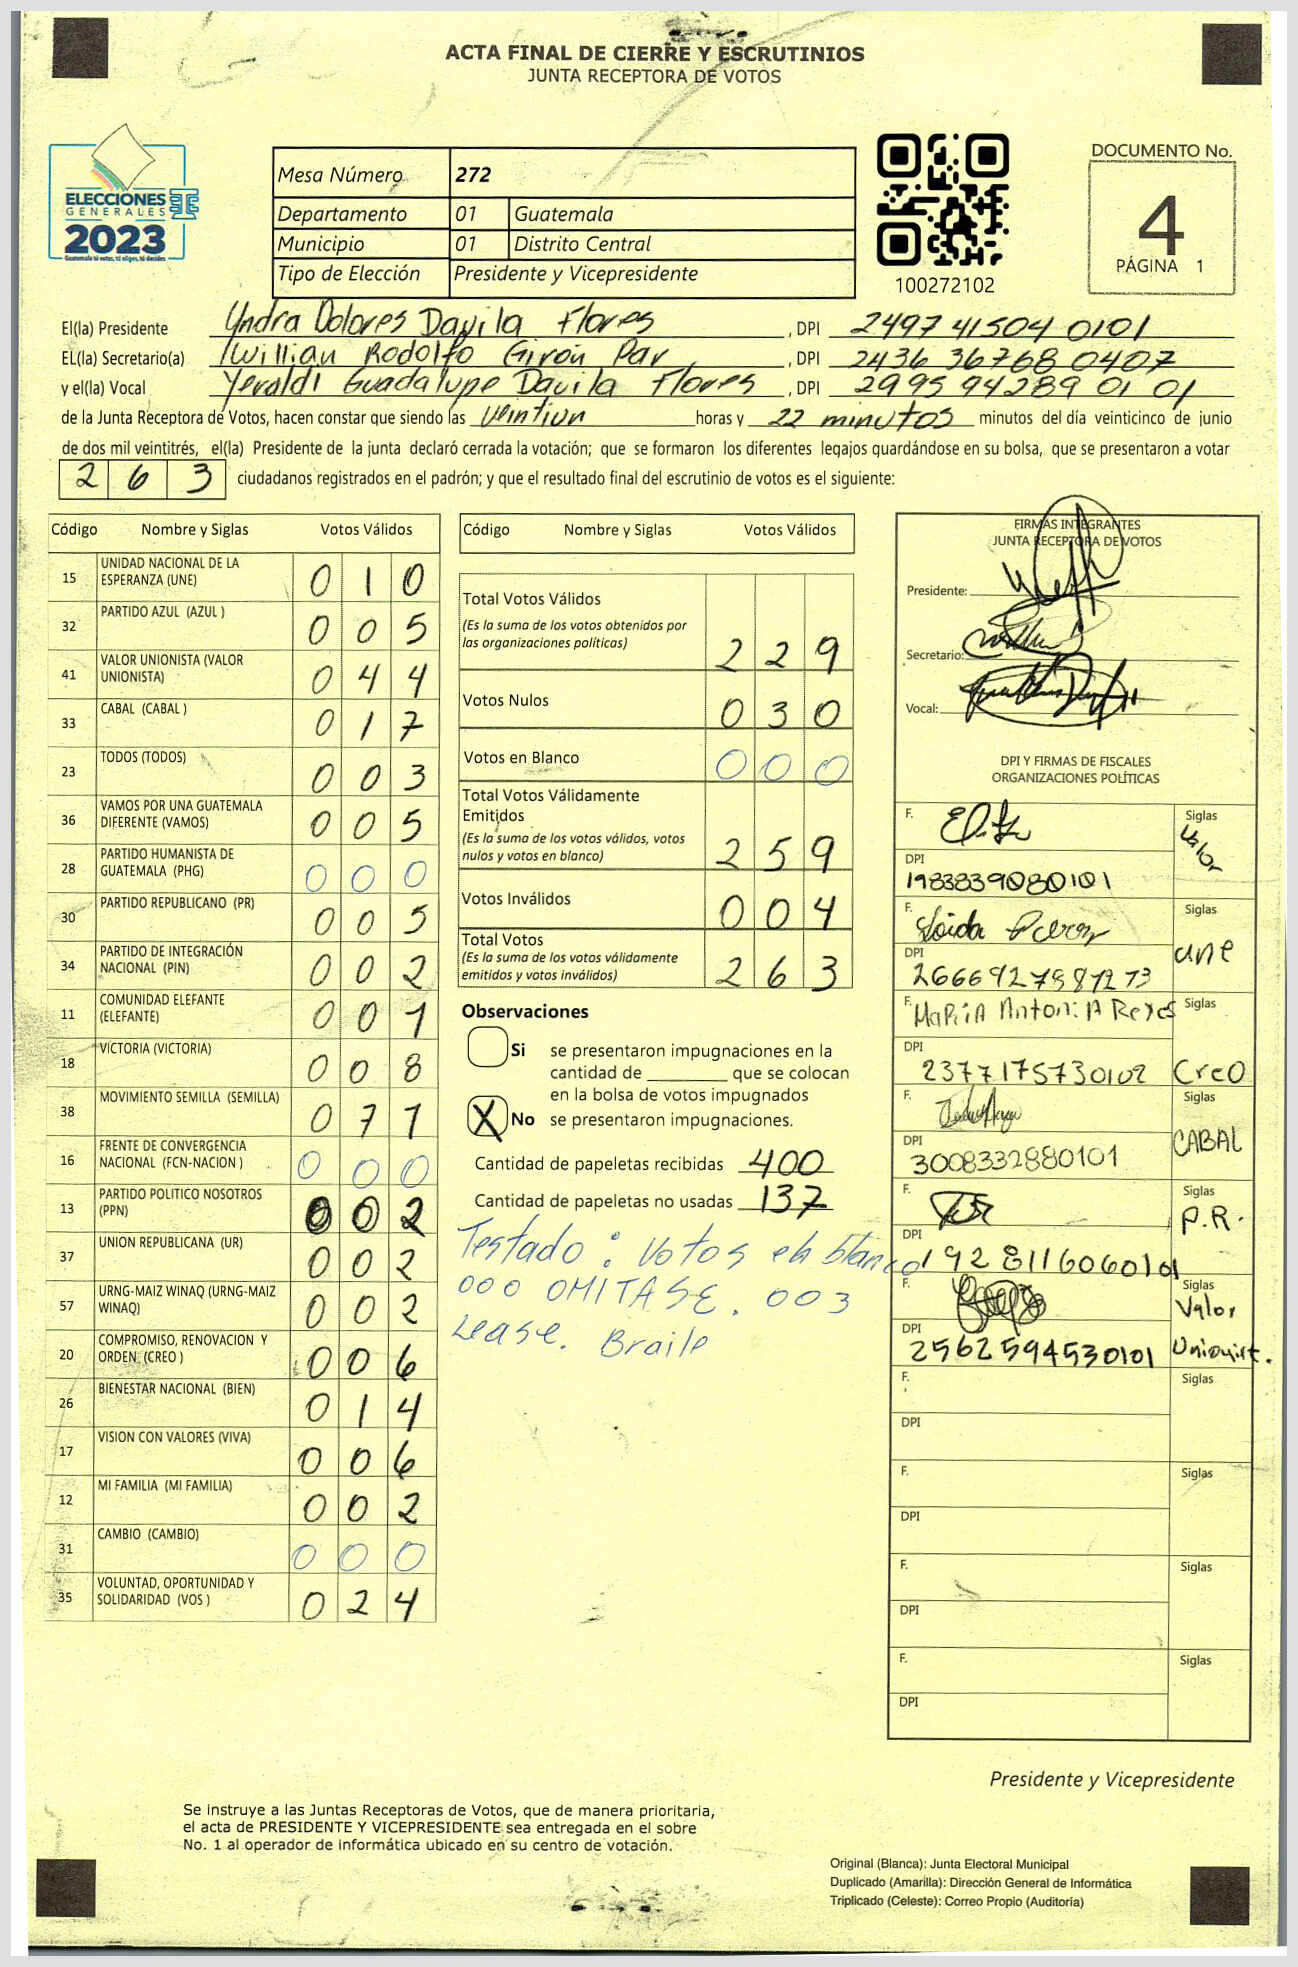 ACTA FINAL DE CIERRE Y ESCRUTINIOS
JUNTA RECEPTORA DE VOTOS
ELECCIONES
GENERALES
2023
Guatemala tú votas, tú eliges, tú decides
Mesa Número 272
Departamento 01 Guatemala
Municipio 01 Distrito Central
Tipo de Elección Presidente y Vicepresidente
100272102
DOCUMENTO No.
4
PÁGINA 1
El(la) Presidente Yndra Dolores Davila Flores, DPI 2497 41504 0101
EL(la) Secretario(a) Willian Rodolfo Girón Par, DPI 2436 36768 0407
y el(la) Vocal Yeraldi Guadalupe Davila Flores, DPI 2995 94289 01 01
de la Junta Receptora de Votos, hacen constar que siendo las veintiun horas y 22 minutos minutos del día veinticinco de junio
de dos mil veintitrés, el(la) Presidente de la junta declaró cerrada la votación; que se formaron los diferentes legajos guardándose en su bolsa, que se presentaron a votar
263 ciudadanos registrados en el padrón; y que el resultado final del escrutinio de votos es el siguiente:
Código Nombre y Siglas Votos Válidos
15 UNIDAD NACIONAL DE LA ESPERANZA (UNE) 0 1 0
32 PARTIDO AZUL (AZUL ) 0 0 5
41 VALOR UNIONISTA (VALOR UNIONISTA) 0 4 4
33 CABAL (CABAL ) 0 1 7
23 TODOS (TODOS) 0 0 3
36 VAMOS POR UNA GUATEMALA DIFERENTE (VAMOS) 0 0 5
28 PARTIDO HUMANISTA DE GUATEMALA (PHG) 0 0 0
30 PARTIDO REPUBLICANO (PR) 0 0 5
34 PARTIDO DE INTEGRACIÓN NACIONAL (PIN) 0 0 2
11 COMUNIDAD ELEFANTE (ELEFANTE) 0 0 1
18 VICTORIA (VICTORIA) 0 0 8
38 MOVIMIENTO SEMILLA (SEMILLA) 0 7 1
16 FRENTE DE CONVERGENCIA NACIONAL (FCN-NACION ) 0 0 0
13 PARTIDO POLITICO NOSOTROS (PPN) 0 0 2
37 UNION REPUBLICANA (UR) 0 0 2
57 URNG-MAIZ WINAQ (URNG-MAIZ WINAQ) 0 0 2
20 COMPROMISO, RENOVACION Y ORDEN (CREO ) 0 0 6
26 BIENESTAR NACIONAL (BIEN) 0 1 4
17 VISION CON VALORES (VIVA) 0 0 6
12 MI FAMILIA (MI FAMILIA) 0 0 2
31 CAMBIO (CAMBIO) 0 0 0
35 VOLUNTAD, OPORTUNIDAD Y SOLIDARIDAD (VOS ) 0 2 4
Código Nombre y Siglas Votos Válidos
Total Votos Válidos
(Es la suma de los votos obtenidos por
las organizaciones políticas) 2 2 9
Votos Nulos 0 3 0
Votos en Blanco 0 0 0
Total Votos Válidamente
Emitidos
(Es la suma de los votos válidos, votos
nulos y votos en blanco) 2 5 9
Votos Inválidos 0 0 4
Total Votos
(Es la suma de los votos válidamente
emitidos y votos inválidos) 2 6 3
Observaciones
Si se presentaron impugnaciones en la
cantidad de ________ que se colocan
en la bolsa de votos impugnados
X No se presentaron impugnaciones.
Cantidad de papeletas recibidas 400
Cantidad de papeletas no usadas 137
Testado: Votos en blanco
000 OMITASE. 003
Lease. Braile
FIRMAS INTEGRANTES
JUNTA RECEPTORA DE VOTOS
Presidente:
Secretario:
Vocal:
DPI Y FIRMAS DE FISCALES
ORGANIZACIONES POLÍTICAS
F. Siglas Valor
DPI 1983839080101
F. Siglas une
DPI
F. MaRiiA AntoniA Reyes Siglas Creo
DPI 2377175730102
F. Siglas CABAL
DPI 3008332880101
F. Siglas P.R.
DPI 1928116060101
F. Siglas Valor Unionist.
DPI 2562594530101
F. Siglas
DPI
F. Siglas
DPI
F. Siglas
DPI
F. Siglas
DPI
Presidente y Vicepresidente
Se instruye a las Juntas Receptoras de Votos, que de manera prioritaria,
el acta de PRESIDENTE Y VICEPRESIDENTE sea entregada en el sobre
No. 1 al operador de informática ubicado en su centro de votación.
Original (Blanca): Junta Electoral Municipal
Duplicado (Amarilla): Dirección General de Informática
Triplicado (Celeste): Correo Propio (Auditoría)